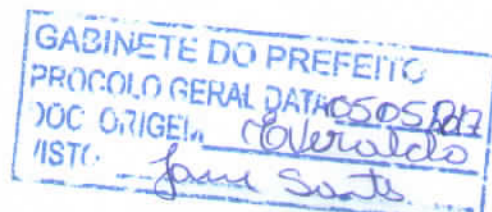 GABINETE DO PREFEITO
PROCOLO GERAL DATA 05 05 2017
DOC ORIGEM Everaldo
VISTO Jane Santos